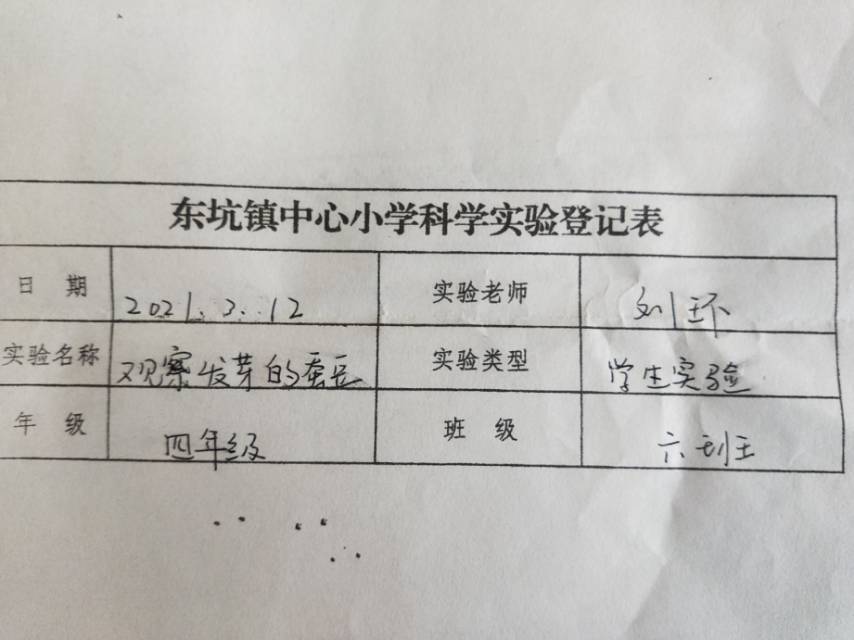 东坑镇中心小学科学实验登记表
日 期 2021.3.12 实验老师 刘环
实验名称 观察发芽的蚕豆 实验类型 学生实验
年 级 四年级 班 级 六班